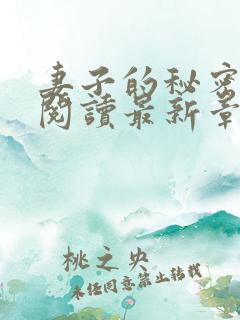 妻子的秘密
閱讀最新章
桃之央
未经同意禁止转载